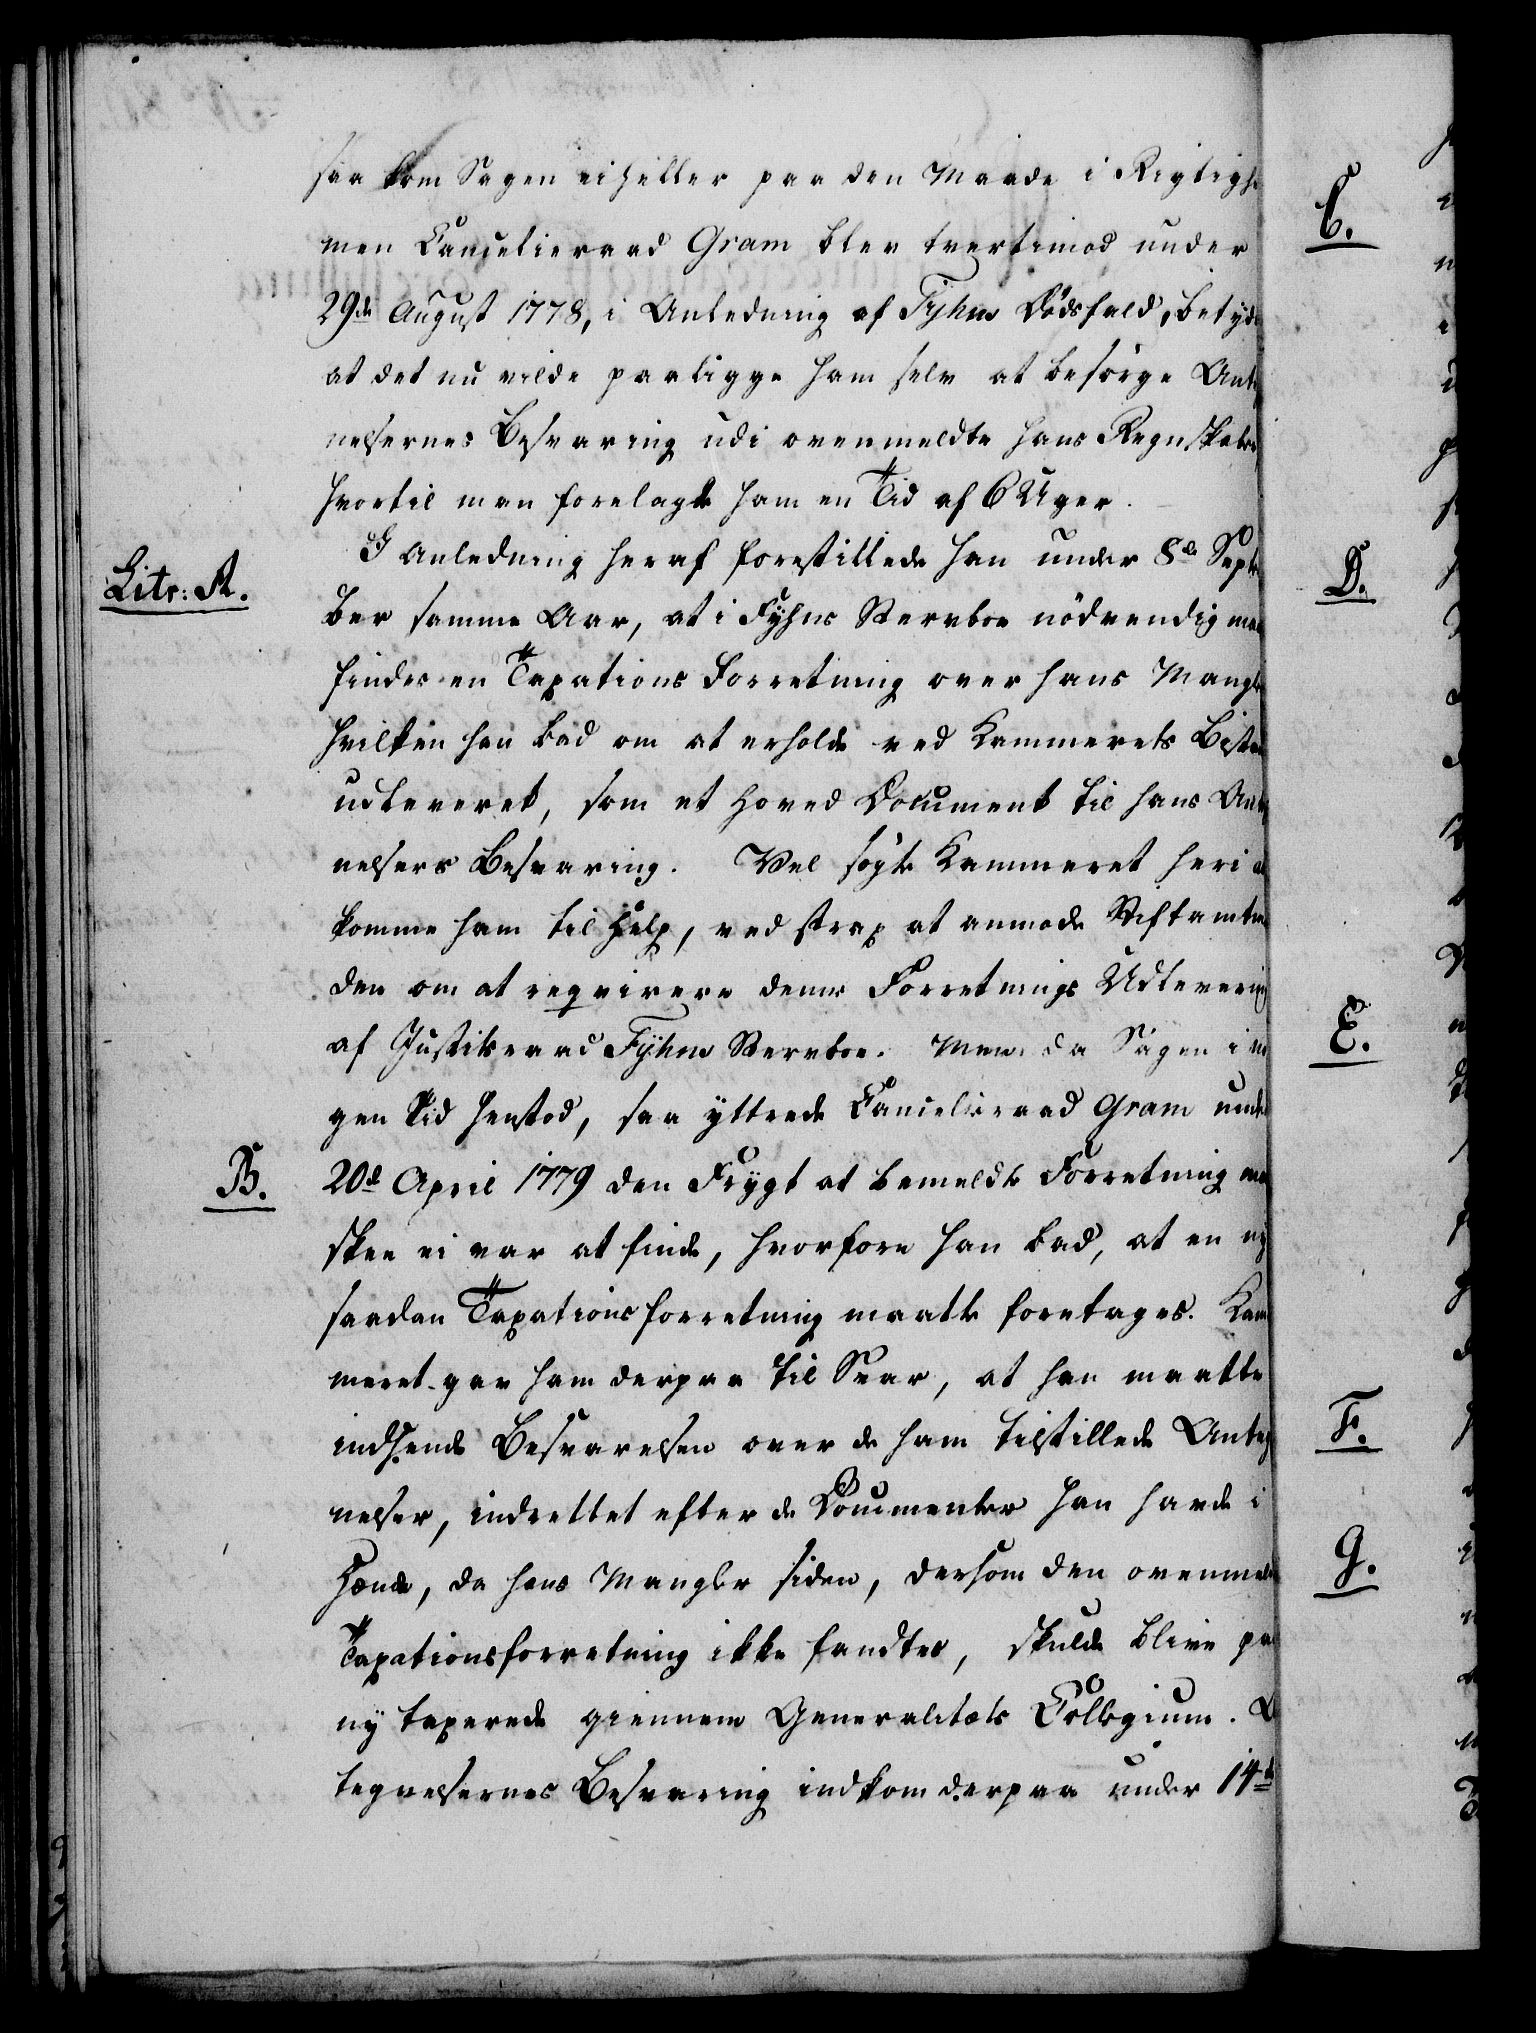 saa kom Sagen ei heller paa den Maade i Rigtigh
men Cancelieraad Gram blev tvertimod under
29de August 1778, i Anledning af Fyhns Dödsfald, betyd
at det nu vilde paaligge ham selv at besörge Ant
nelsernes Besvaring udi ovenmeldte hans Regnskaber
hvortil man forelagde ham en Tid af 6 Uger.
Litr: A.
I Anledning heraf forestillede han under 8de Sept
ber samme Aar, at i Fyhns Stervboe nödvendig maa
findes en Taxations Forretning over hans Mangler
hvilken han bad om at erholde ved Kammerets Bistan
udleveret, som et Hoved Document til hans Ant
nelsers Besvaring. Vel sögte Kammeret heri a
komme ham til Hielp, ved strax at anmode Stiftamtm
den om at reqvirere denne Forretnings Udlevering
af Justiceraad Fyhns Stervboe. Men da Sagen i no
gen Tid henstod, saa yttrede Cancelieraad Gram unde
B.
20de April 1779 den Frygt at bemeldte Forretning maa
skee ei var at finde, hvorfore han bad, at en ny
saadan Taxationsforretning maatte foretages. Kam
meret gav ham derpaa til Svar, at han maatte
indsende Besvarelsen over de ham tilstillede Anteg
nelser, indrettet efter de Documenter han havde i
Hænde, da hans Mangler siden, dersom den ovenmeld
Taxationsforretning ikke fandtes, skulde blive paa
ny taxerede giennem Generalitets Collegium.
tegnelsernes Besvaring indkom derpaa under 14de
C.
D.
E.
F.
G.